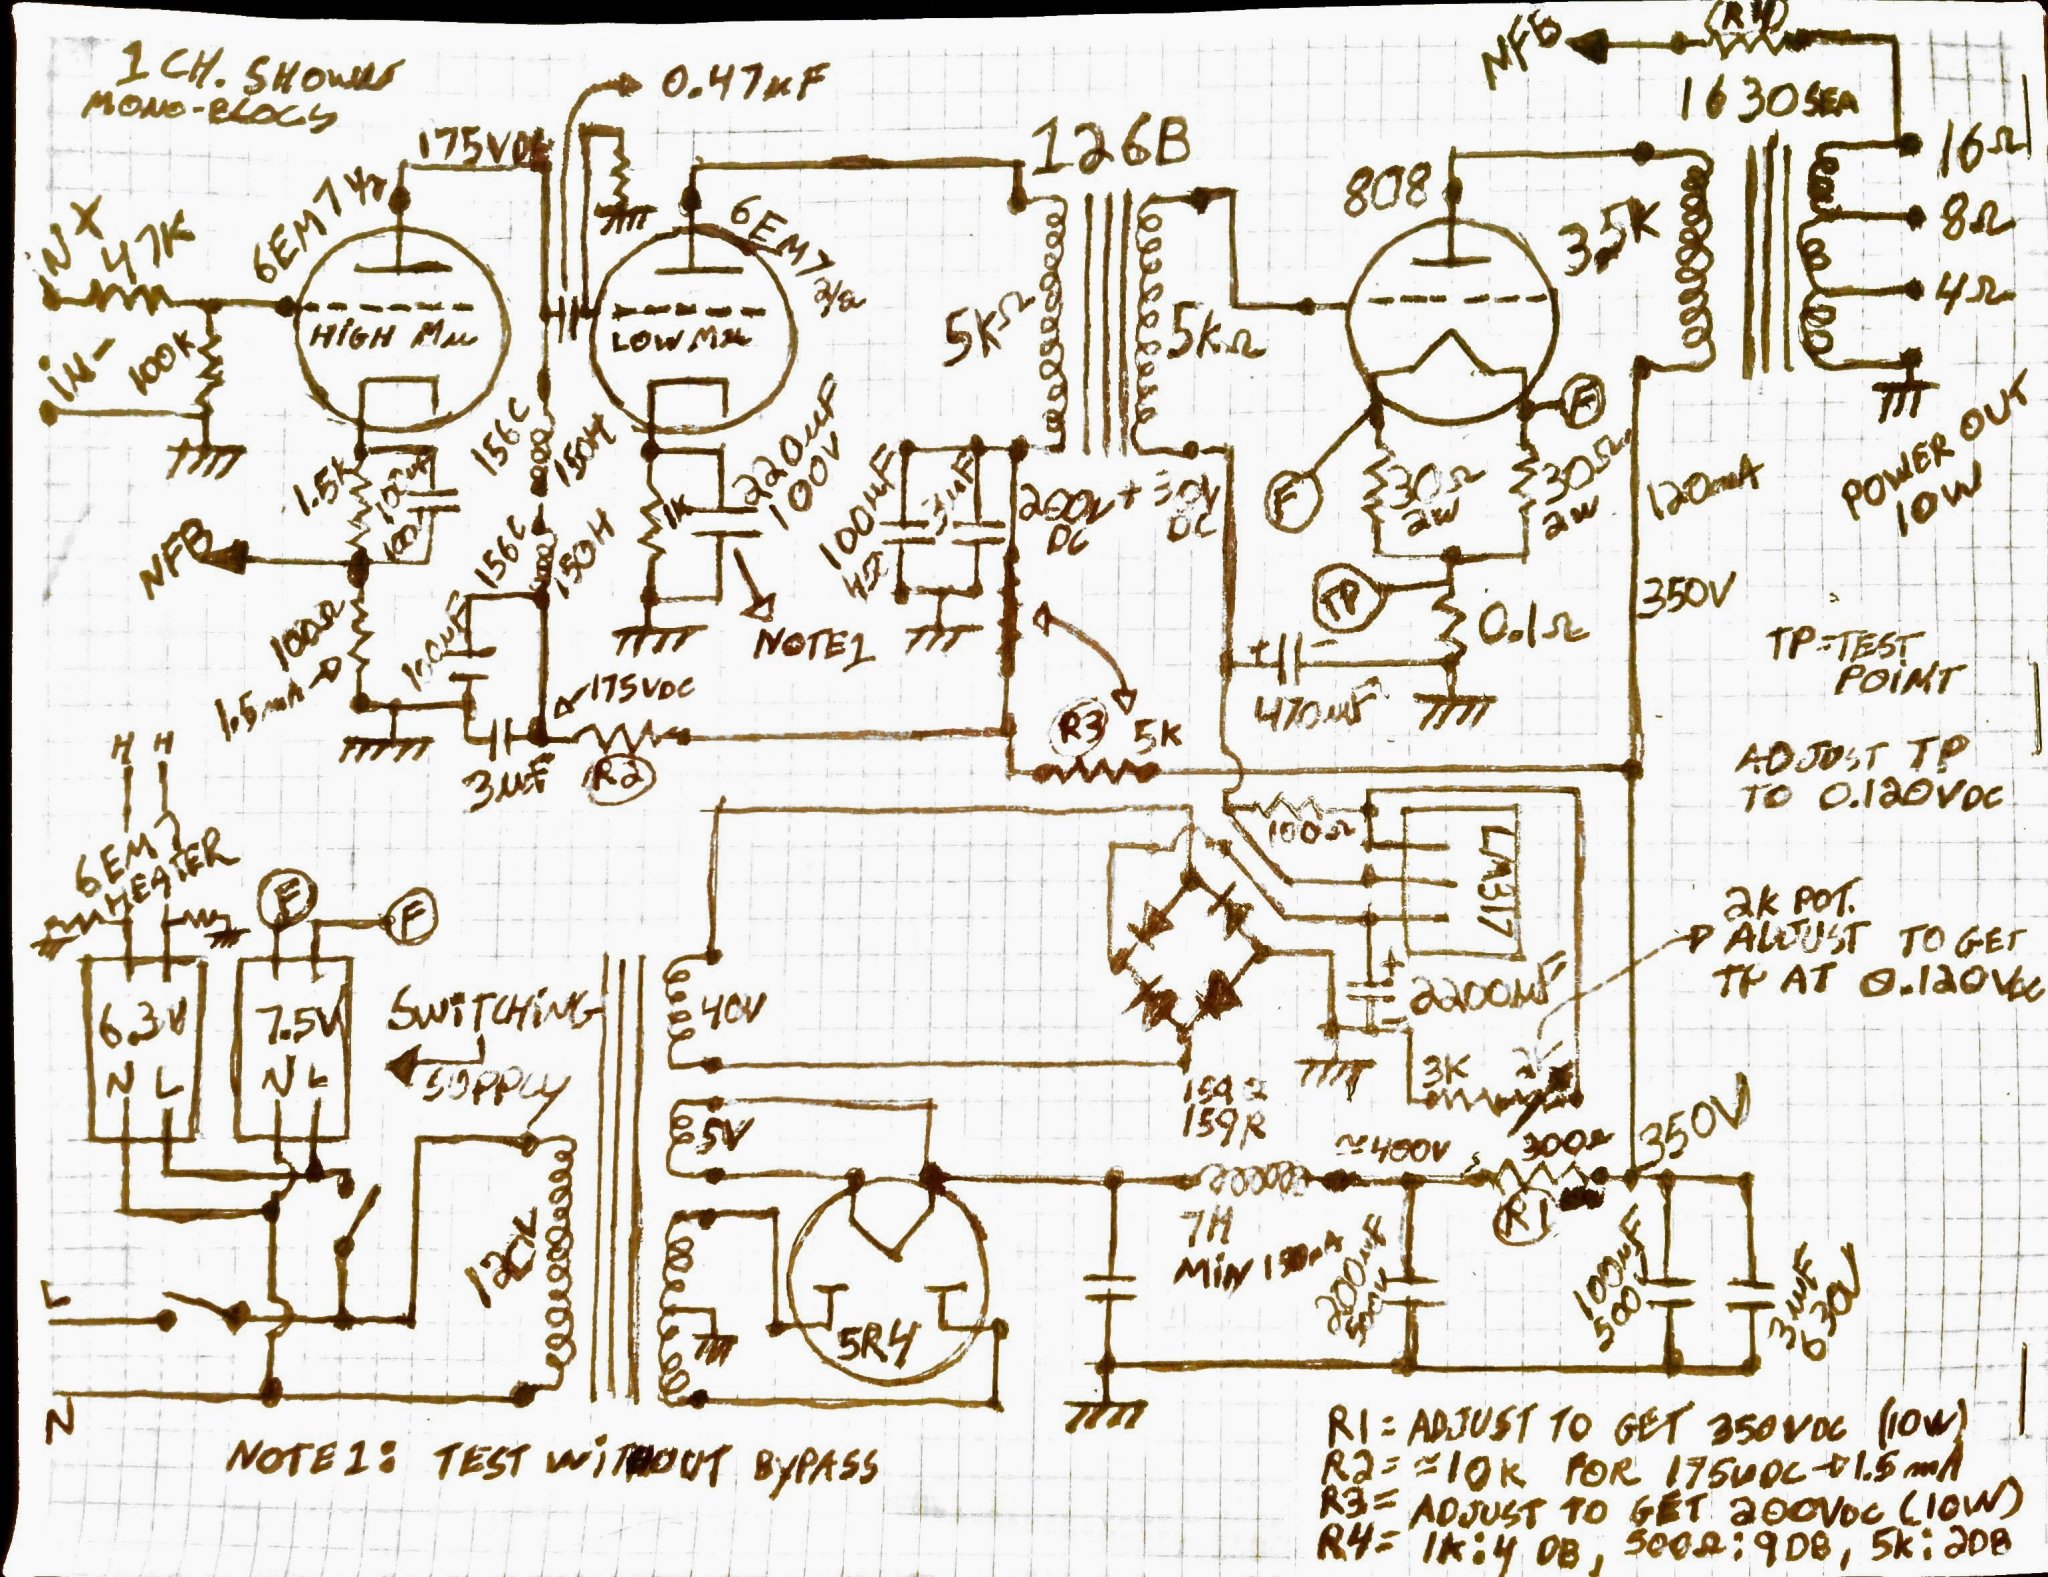 1 CH. SHOWN
MONO-BLOCK
175VDC
0.47uF
126B
808
NFB
(R4)
1630SEA
16Ω
8Ω
4Ω
47K
6EM7 1/2
HIGH Mu
6EM7 1/2
LOW Mu
5KΩ
5KΩ
3.5K
IN-
100K
1.5K
100uF
NFB
100Ω
1.5mA
156C
150H
156C
150H
1K
220uF
100V
NOTE1
100uF
3uF
200V
DC
+30V
DC
F
F
30Ω
2W
30Ω
2W
TP
0.1Ω
470uF
+
-
120mA
350V
POWER OUT
10W
TP=TEST
POINT
ADJUST TP
TO 0.120VDC
100uF
175VDC
3uF
R2
R3
5K
H H
6EM7
HEATER
F
F
6.3V
N L
7.5V
N L
SWITCHING
SUPPLY
100Ω
LM317
2K POT.
ADJUST TO GET
TP AT 0.120VDC
40V
+
2200uF
-
3K
2K
159R
5V
7H
MIN 150mA
≈400V
300Ω
R1
350V
200uF
100uF
500V
3uF
630V
5R4
L
N
NOTE1: TEST WITHOUT BYPASS
R1= ADJUST TO GET 350VDC (10W)
R2= ≈10K FOR 175VDC → 1.5mA
R3= ADJUST TO GET 200VDC (10W)
R4= 1K:4 DB, 500Ω:9DB, 5K:2DB